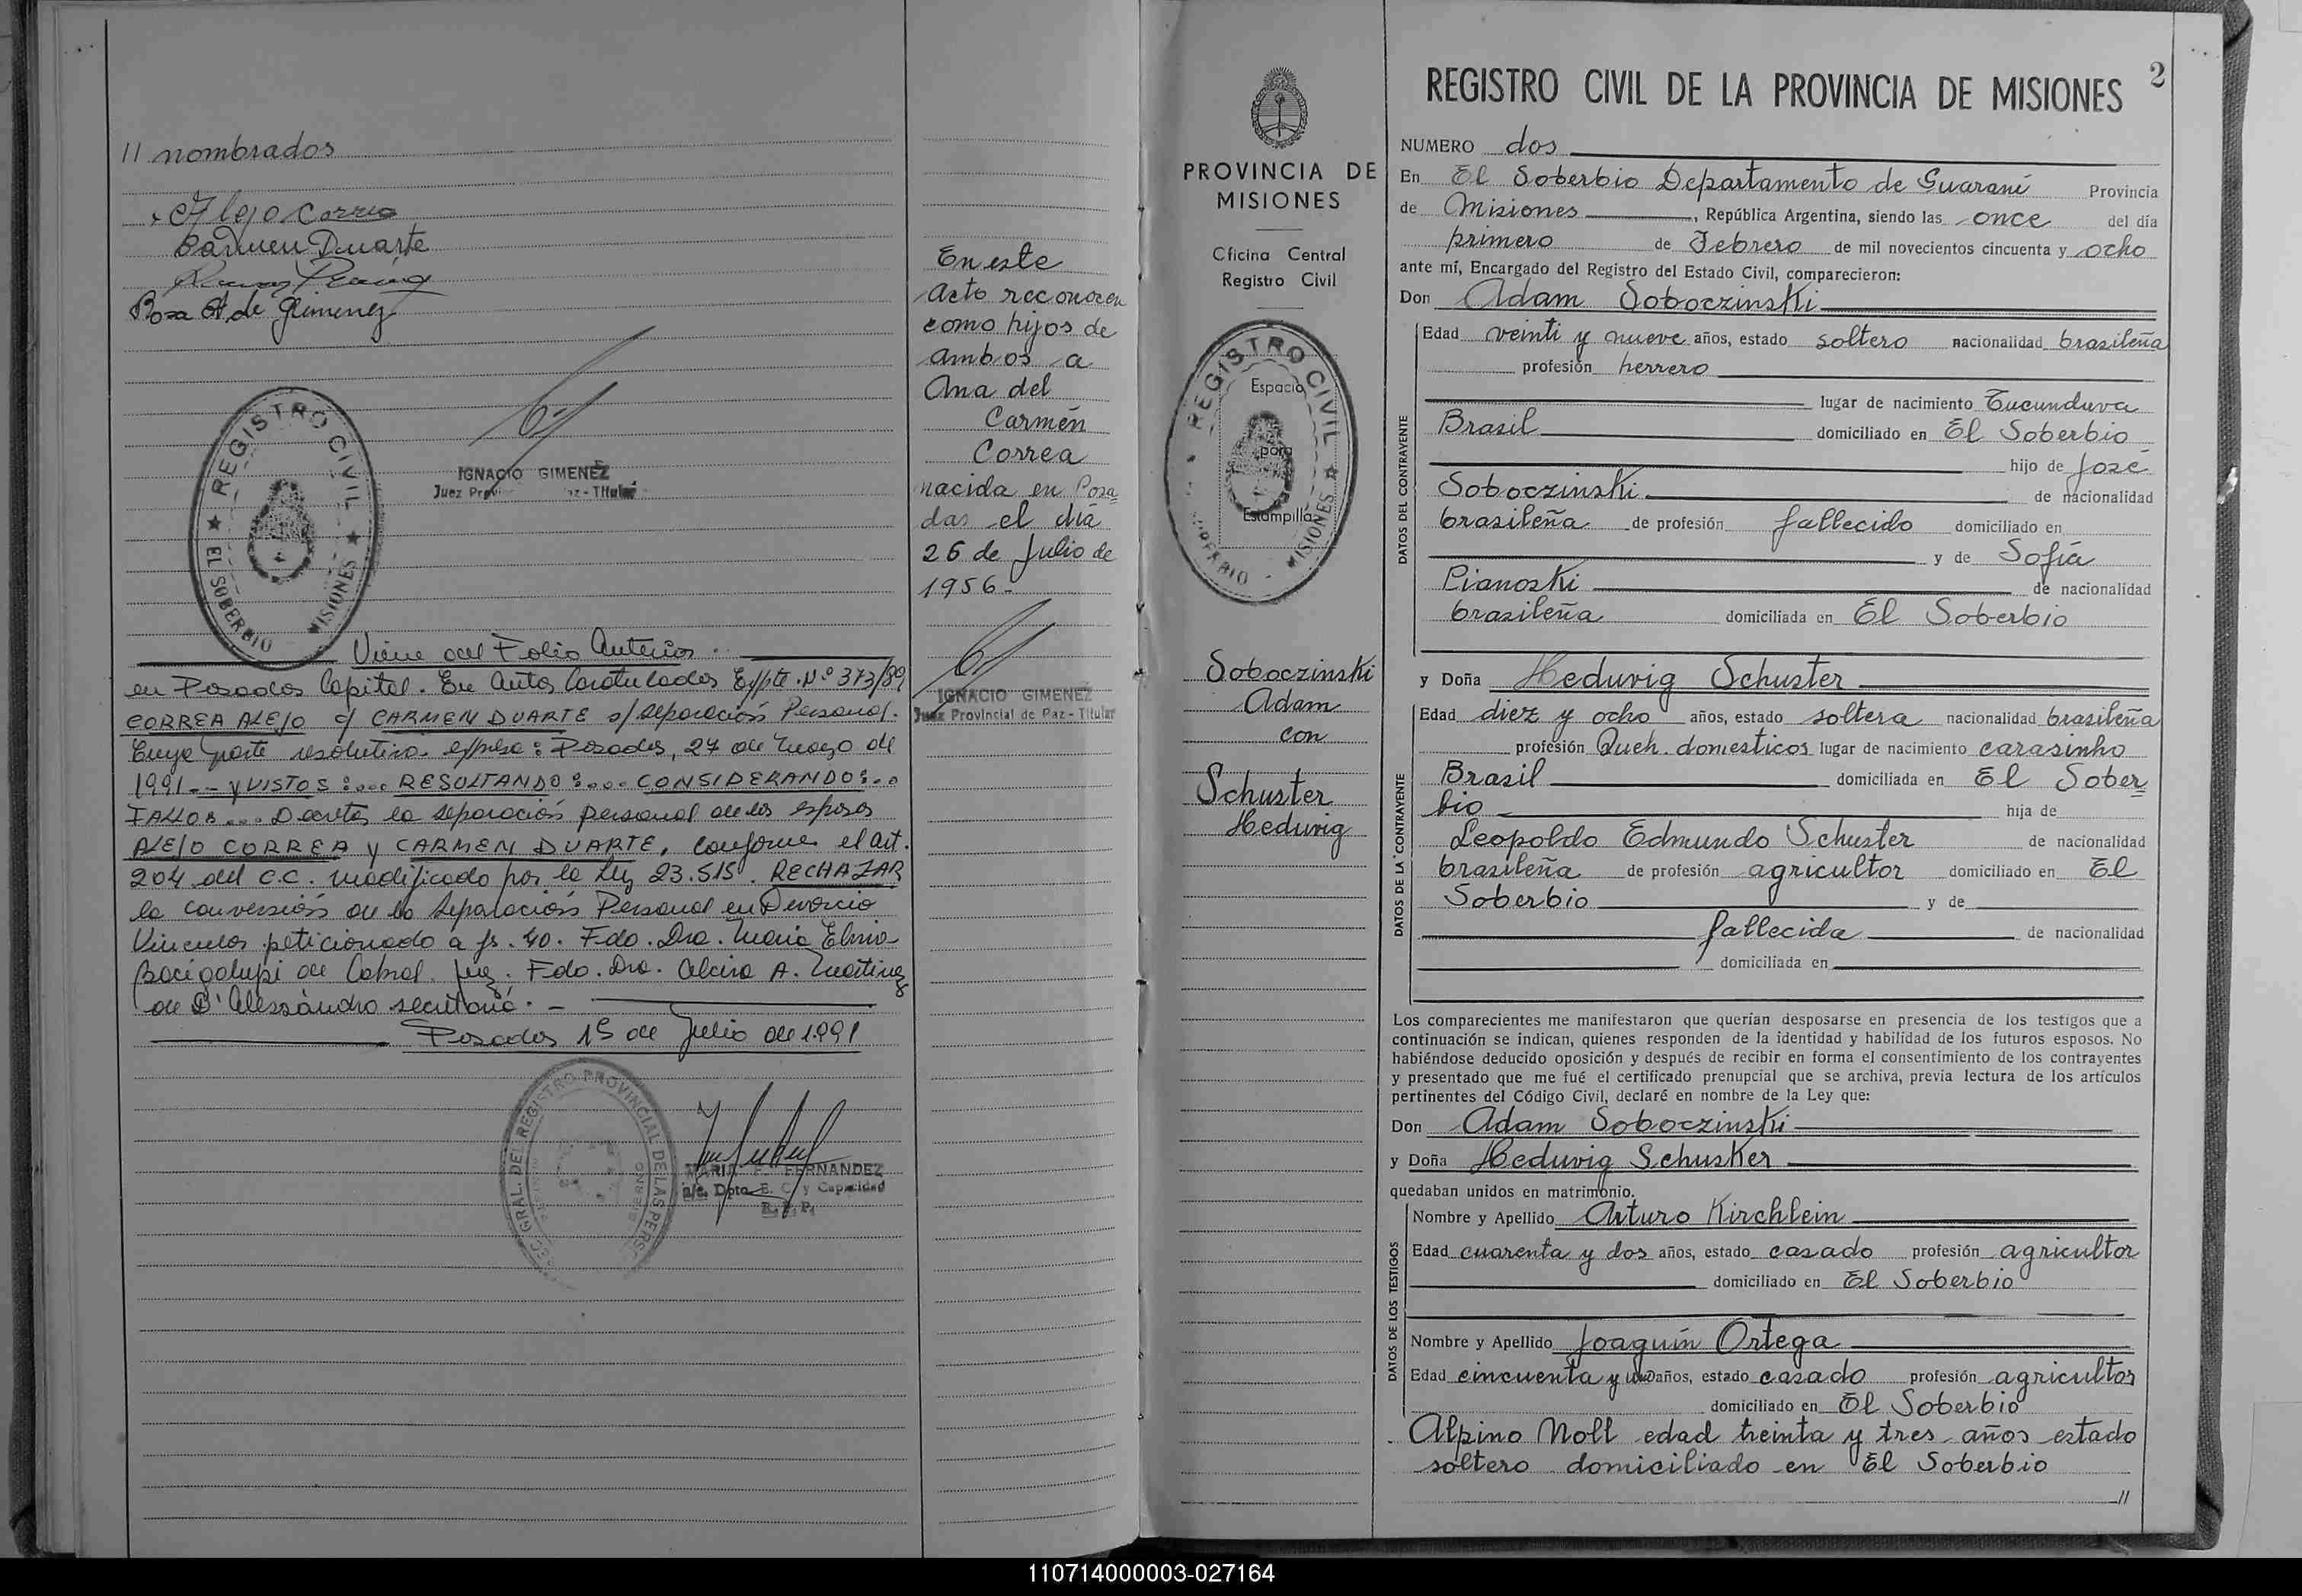 // nombrados
Alejo Correa
Carmen Duarte
Rosa A. de Gimenez
REGISTRO CIVIL
EL SOBERBIO
MISIONES
IGNACIO GIMENEZ
Juez Provincial de Paz - Titular
Viene del Folio Anterior.
en Posadas Capital. En Autos Caratulados Expte. Nº 373/89
CORREA ALEJO c/ CARMEN DUARTE s/ Separación Personal.
Cuya parte resolutiva expresa: Posadas, 27 de Marzo de
1991.- y VISTOS:... RESULTANDO:... CONSIDERANDO:...
FALLO:... Decretar la separación personal de los esposos
ALEJO CORREA y CARMEN DUARTE, conforme el art.
204 del C.C. modificado por la Ley 23.515. RECHAZAR
la conversión de la Separación Personal en Divorcio
Vincular peticionado a fs. 40. Fdo. Dra. María Elmira
Bacigalupi de Cabral. Juez. Fdo. Dra. Alcira A. Martinez
de D'Alessandro secretaria. -
Posadas 15 de Julio de 1991
DEL REGISTRO PROVINCIAL DE LAS PERS
FERNANDEZ
a/c. Dpto. E. C. y Capacidad
R. P. P.
En este
acto reconocen
como hijos de
ambos a
Ana del
Carmén
Correa
nacida en Posa
das el día
26 de Julio de
1956.-
IGNACIO GIMENEZ
Juez Provincial de Paz - Titular
PROVINCIA DE
MISIONES
Oficina Central
Registro Civil
REGISTRO CIVIL
MISIONES
Espacio
para
Estampilla
Soboczinski
Adam
con
Schuster
Heduvig
2
REGISTRO CIVIL DE LA PROVINCIA DE MISIONES
NUMERO dos
En El Soberbio Departamento de Guaraní Provincia
de Misiones, República Argentina, siendo las once del día
primero de Febrero de mil novecientos cincuenta y ocho
ante mí, Encargado del Registro del Estado Civil, comparecieron:
Don Adam Soboczinski
DATOS DEL CONTRAYENTE
Edad veinti y nueve años, estado soltero nacionalidad brasileña
profesión herrero
lugar de nacimiento Tucunduva
Brasil domiciliado en El Soberbio
hijo de José
Soboczinski de nacionalidad
brasileña de profesión fallecido domiciliado en
y de Sofía
Pianoski de nacionalidad
brasileña domiciliada en El Soberbio
y Doña Heduvig Schuster
DATOS DE LA CONTRAYENTE
Edad diez y ocho años, estado soltera nacionalidad brasileña
profesión Queh. domesticos lugar de nacimiento carasinho
Brasil domiciliada en El Sober
bio hija de
Leopoldo Edmundo Schuster de nacionalidad
brasileña de profesión agricultor domiciliado en El
Soberbio y de
fallecida de nacionalidad
domiciliada en
Los comparecientes me manifestaron que querían desposarse en presencia de los testigos que a
continuación se indican, quienes responden de la identidad y habilidad de los futuros esposos. No
habiéndose deducido oposición y después de recibir en forma el consentimiento de los contrayentes
y presentado que me fué el certificado prenupcial que se archiva, previa lectura de los artículos
pertinentes del Código Civil, declaré en nombre de la Ley que:
Don Adam Soboczinski
y Doña Heduvig Schusker
quedaban unidos en matrimonio.
DATOS DE LOS TESTIGOS
Nombre y Apellido Arturo Kirchlein
Edad cuarenta y dos años, estado casado profesión agricultor
domiciliado en El Soberbio
Nombre y Apellido Joaquín Ortega
Edad cincuenta y uno años, estado casado profesión agricultor
domiciliado en El Soberbio
Alpino Noll edad treinta y tres años estado
soltero domiciliado en El Soberbio
//
110714000003-027164